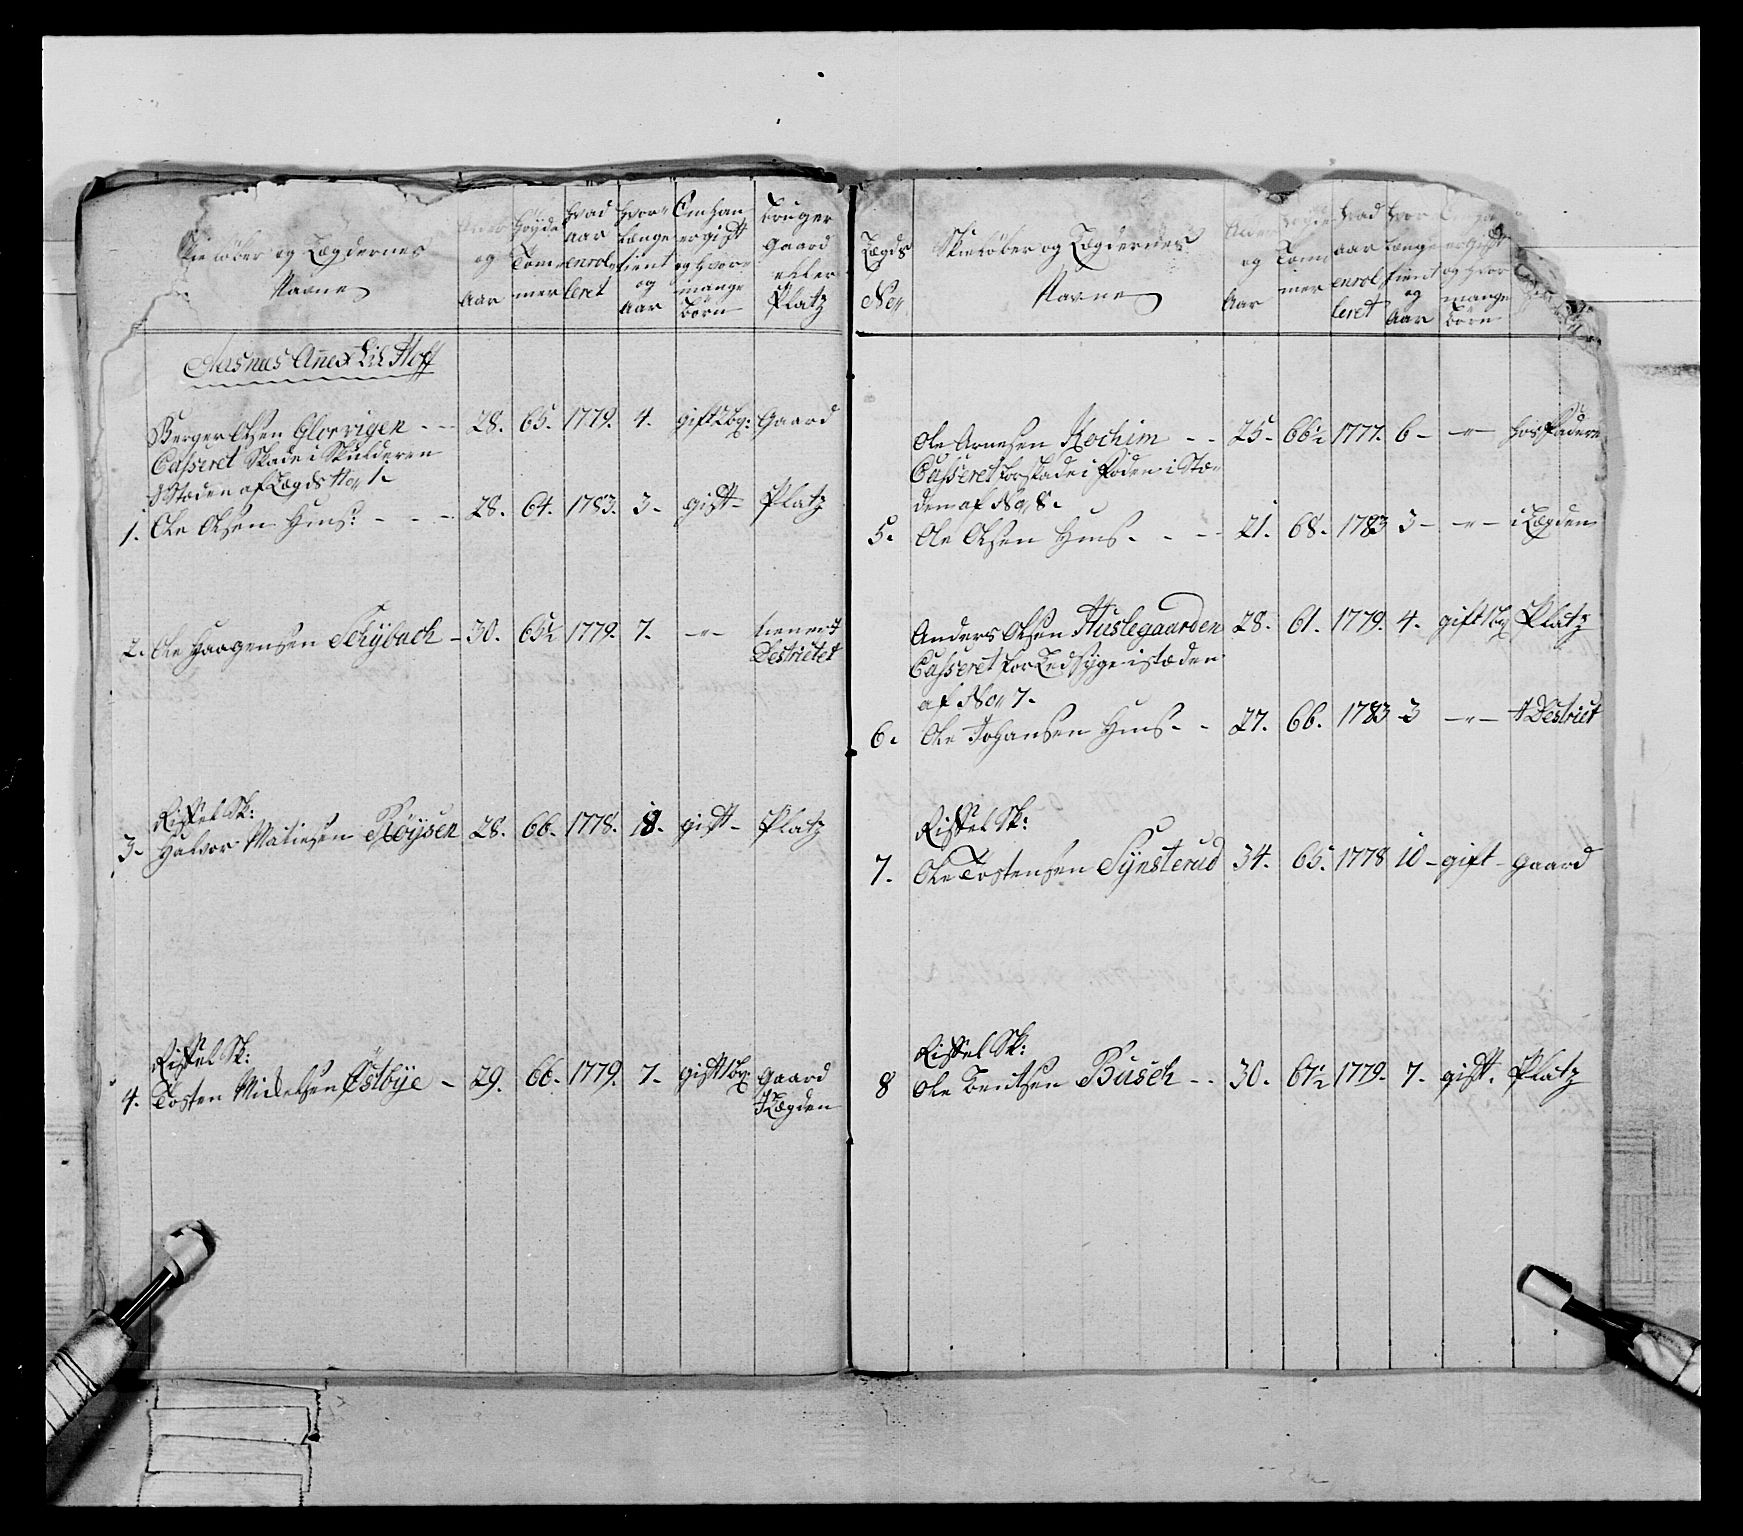 Skieløber og Lægdernes Navne
Alder og Aar
Høyde Tommer
hvad aar enroleret
hvor længe tient og Aar
Om han er gift og hvor mange Børn
bruger gaard eller Platz
Aasnæs Anex til Hoff
Berger Olsen Glorvigen - - 28. 65. 1779. 4. gift 2bø: Gaard
Casseret Skade i Skulderen
I Stæden af Lægds No 1.
1. Ole Olsen Hms: - - - 28. 64. 1783. 3 - gift - Platz
2. Ole Haagensen Schÿbach - 30. 65½ 1779. 7. -"- tiener i
Destrictet
Riffel Sk:
3. Halvor Matiesen Røÿsen 28. 66. 1778. 18. gift - Platz
Riffel Sk:
4. Tosten Mickelsen Østbÿe - 29. 66. 1779. 7. gift 1bø: gaard
I Lægden
Lægds No
Skieløber og Lægdernes Navne
Alder og Aar
Tommer
hvad aar enroleret
hvor længe tient og Aar
er gift og hvor mange Børn
Ole Arnesen Kochim - - 25. 66½ 1777. 6 - -"- hos Fadern
Casseret for Skade i Foden i Stæ-
den af No 8.
5. Ole Olsen Hms - - - 21. 68. 1783 3 - -"- i Lægden
Anders Olsen Huslegaarden 28. 61. 1779. 4. gift 1bø Platz
Casseret for Ledsyge i stæden
af No 7.
6. Ole Johansen Hms - - 27. 66. 1783 3 -"- I Destrict
Riffel Sk:
7. Ole Tostensen Sÿnsterud 34. 65. 1778 10 - gift - gaard
Riffel Sk:
8 Ole Bentsen Busch - - 30. 67½ 1779. 7. gift. Platz